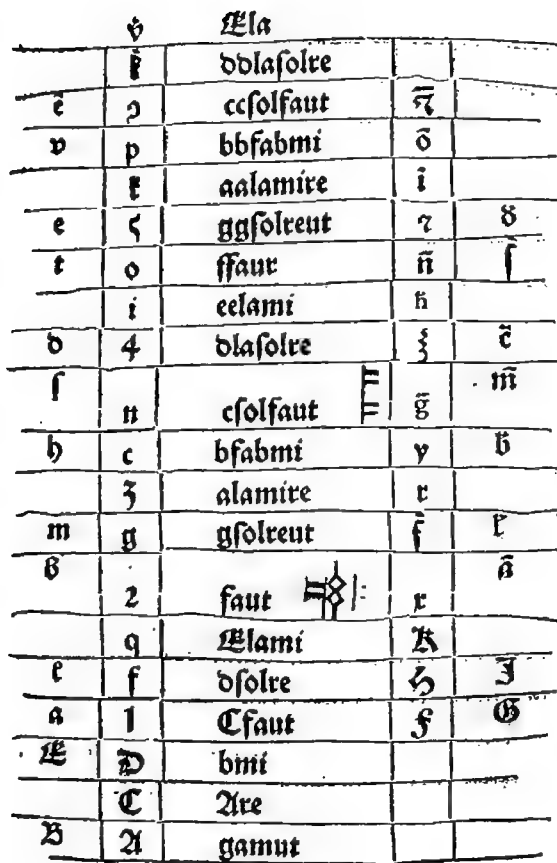 v̈ Ela
ddlaſolre
ē ɔ ccſolfaut
v p bbfabmi ō
aalamire ī
e ς ggſolreut ꝛ
t o ffaur n̄ ſ̄
i eelami
d 4 dlaſolre ξ c̄
ſ m̄
n cſolfaut ḡ
h c bfabmi y
ʒ alamire r
m g gſolreut f̄
ā
2 faut x
q Elami K
f dſolre H
a l Cfaut F G
E D bmi
C Are
B A gamut